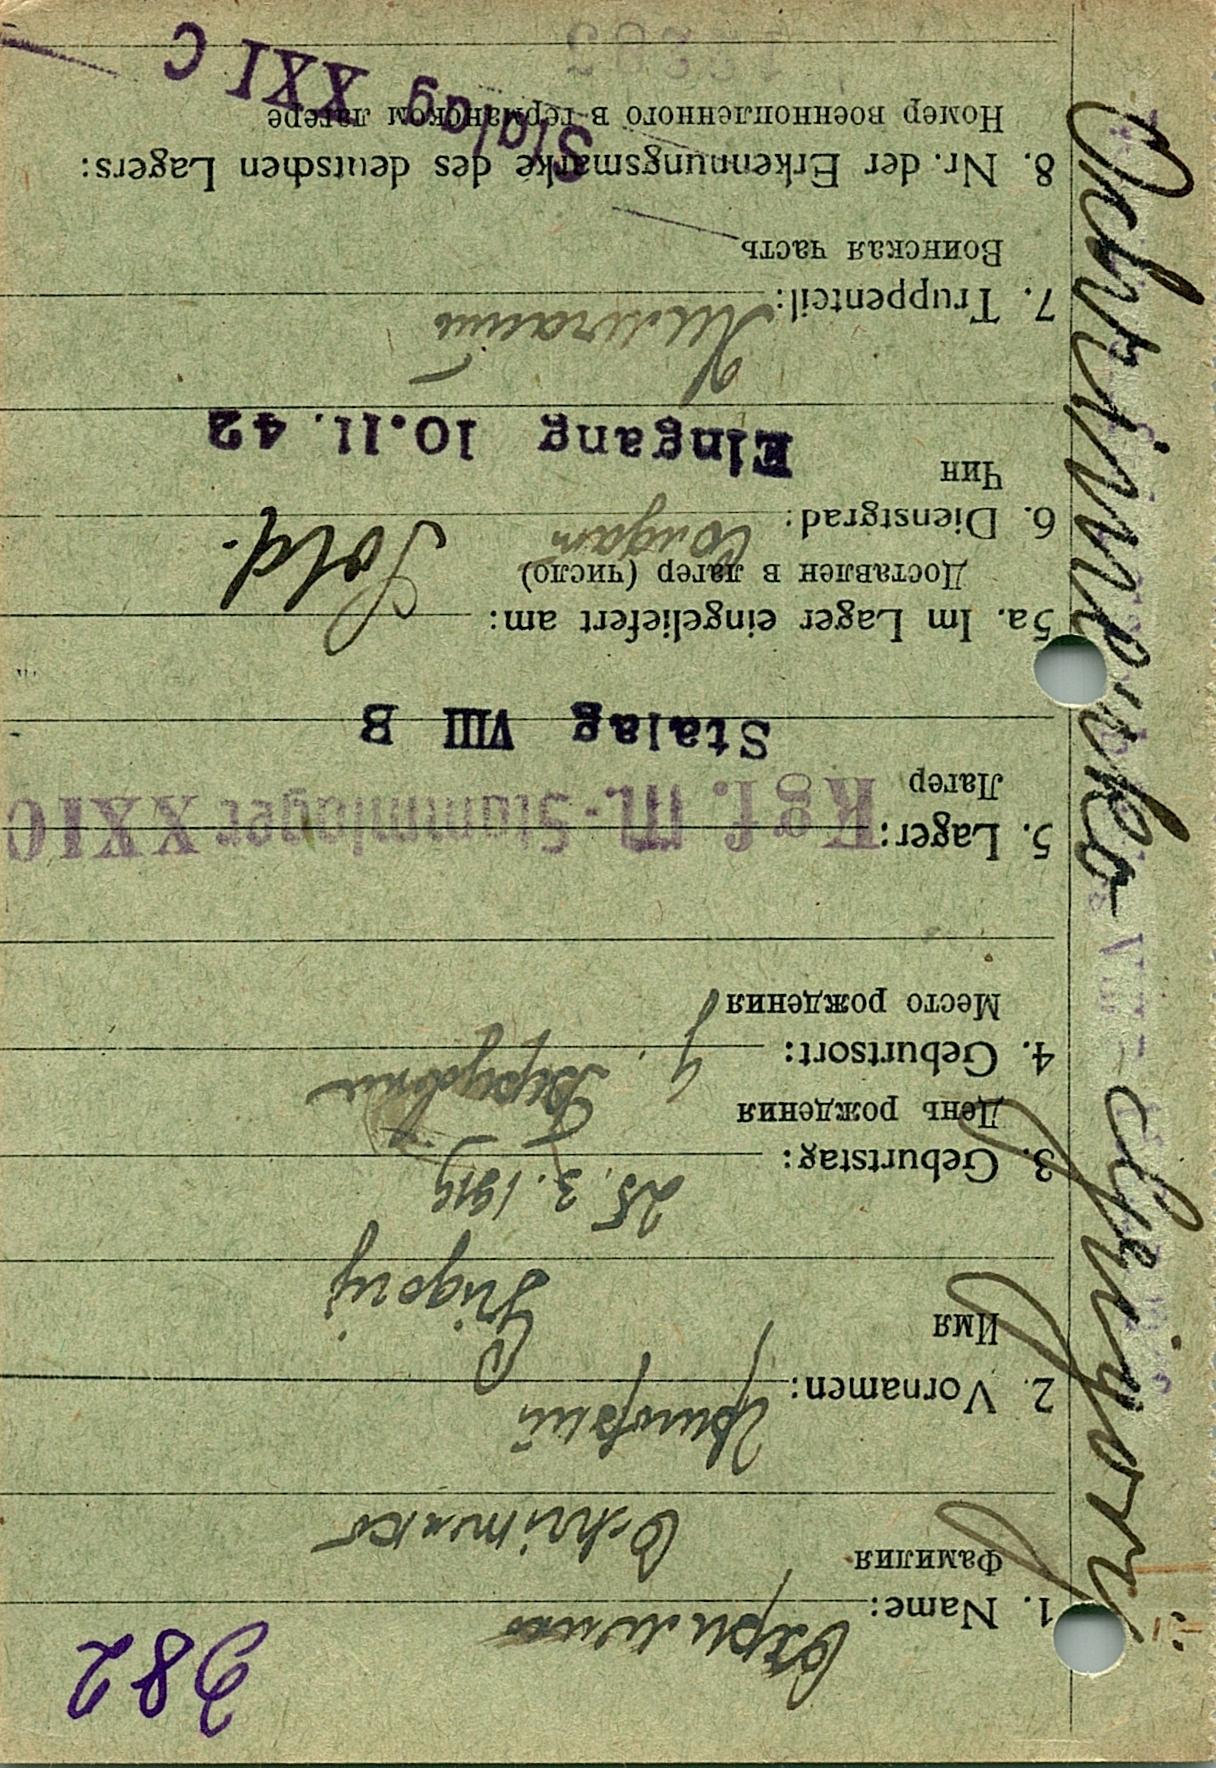 382
1. Name: Охрименко
Фамилия
Ochrimenko
2. Vornamen: Григорий
Имя
Grigorij
3. Geburtstag: 25.3.1919
День рождения
4. Geburtsort:
Место рождения
5. Lager: Kgf. M.-Stammlager XXI C
Лагерь
Stalag VIII B
5a. Im Lager eingeliefert am:
Доставлен в лагер (число)
Sold.
6. Dienstgrad: Солдат
Чин
Eingang 10.11.42
7. Truppenteil:
Воинская часть
8. Nr. der Erkennungsmarke des deutschen Lagers:
Номер военнопленного в германском лагере
Stalag XXI C
Ochrimenko Grigory